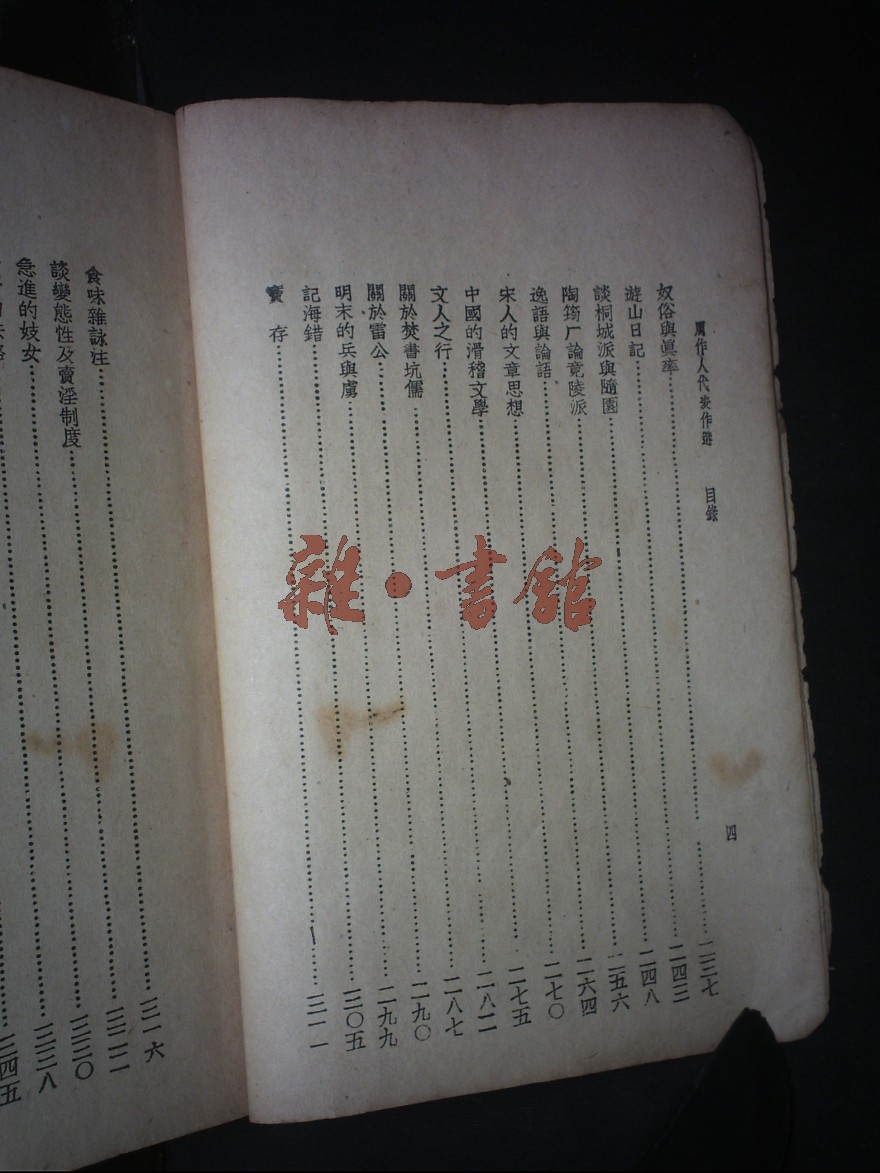 周作人代表作選 目錄 四
奴俗與眞率 二三七
遊山日記 二四三
談桐城派與隨園 二四八
陶筠厂論竟陵派 二五六
逸語與論語 二六四
宋人的文章思想 二七〇
中國的滑稽文學 二七五
文人之行 二八二
關於焚書坑儒 二八七
關於雷公 二九〇
明末的兵與虜 二九九
記海錯 三〇五
寶存 三一一
食味雜詠注 三一六
談變態性及賣淫制度 三二二
急進的妓女 三三〇
三三八
三四五
雜·書館